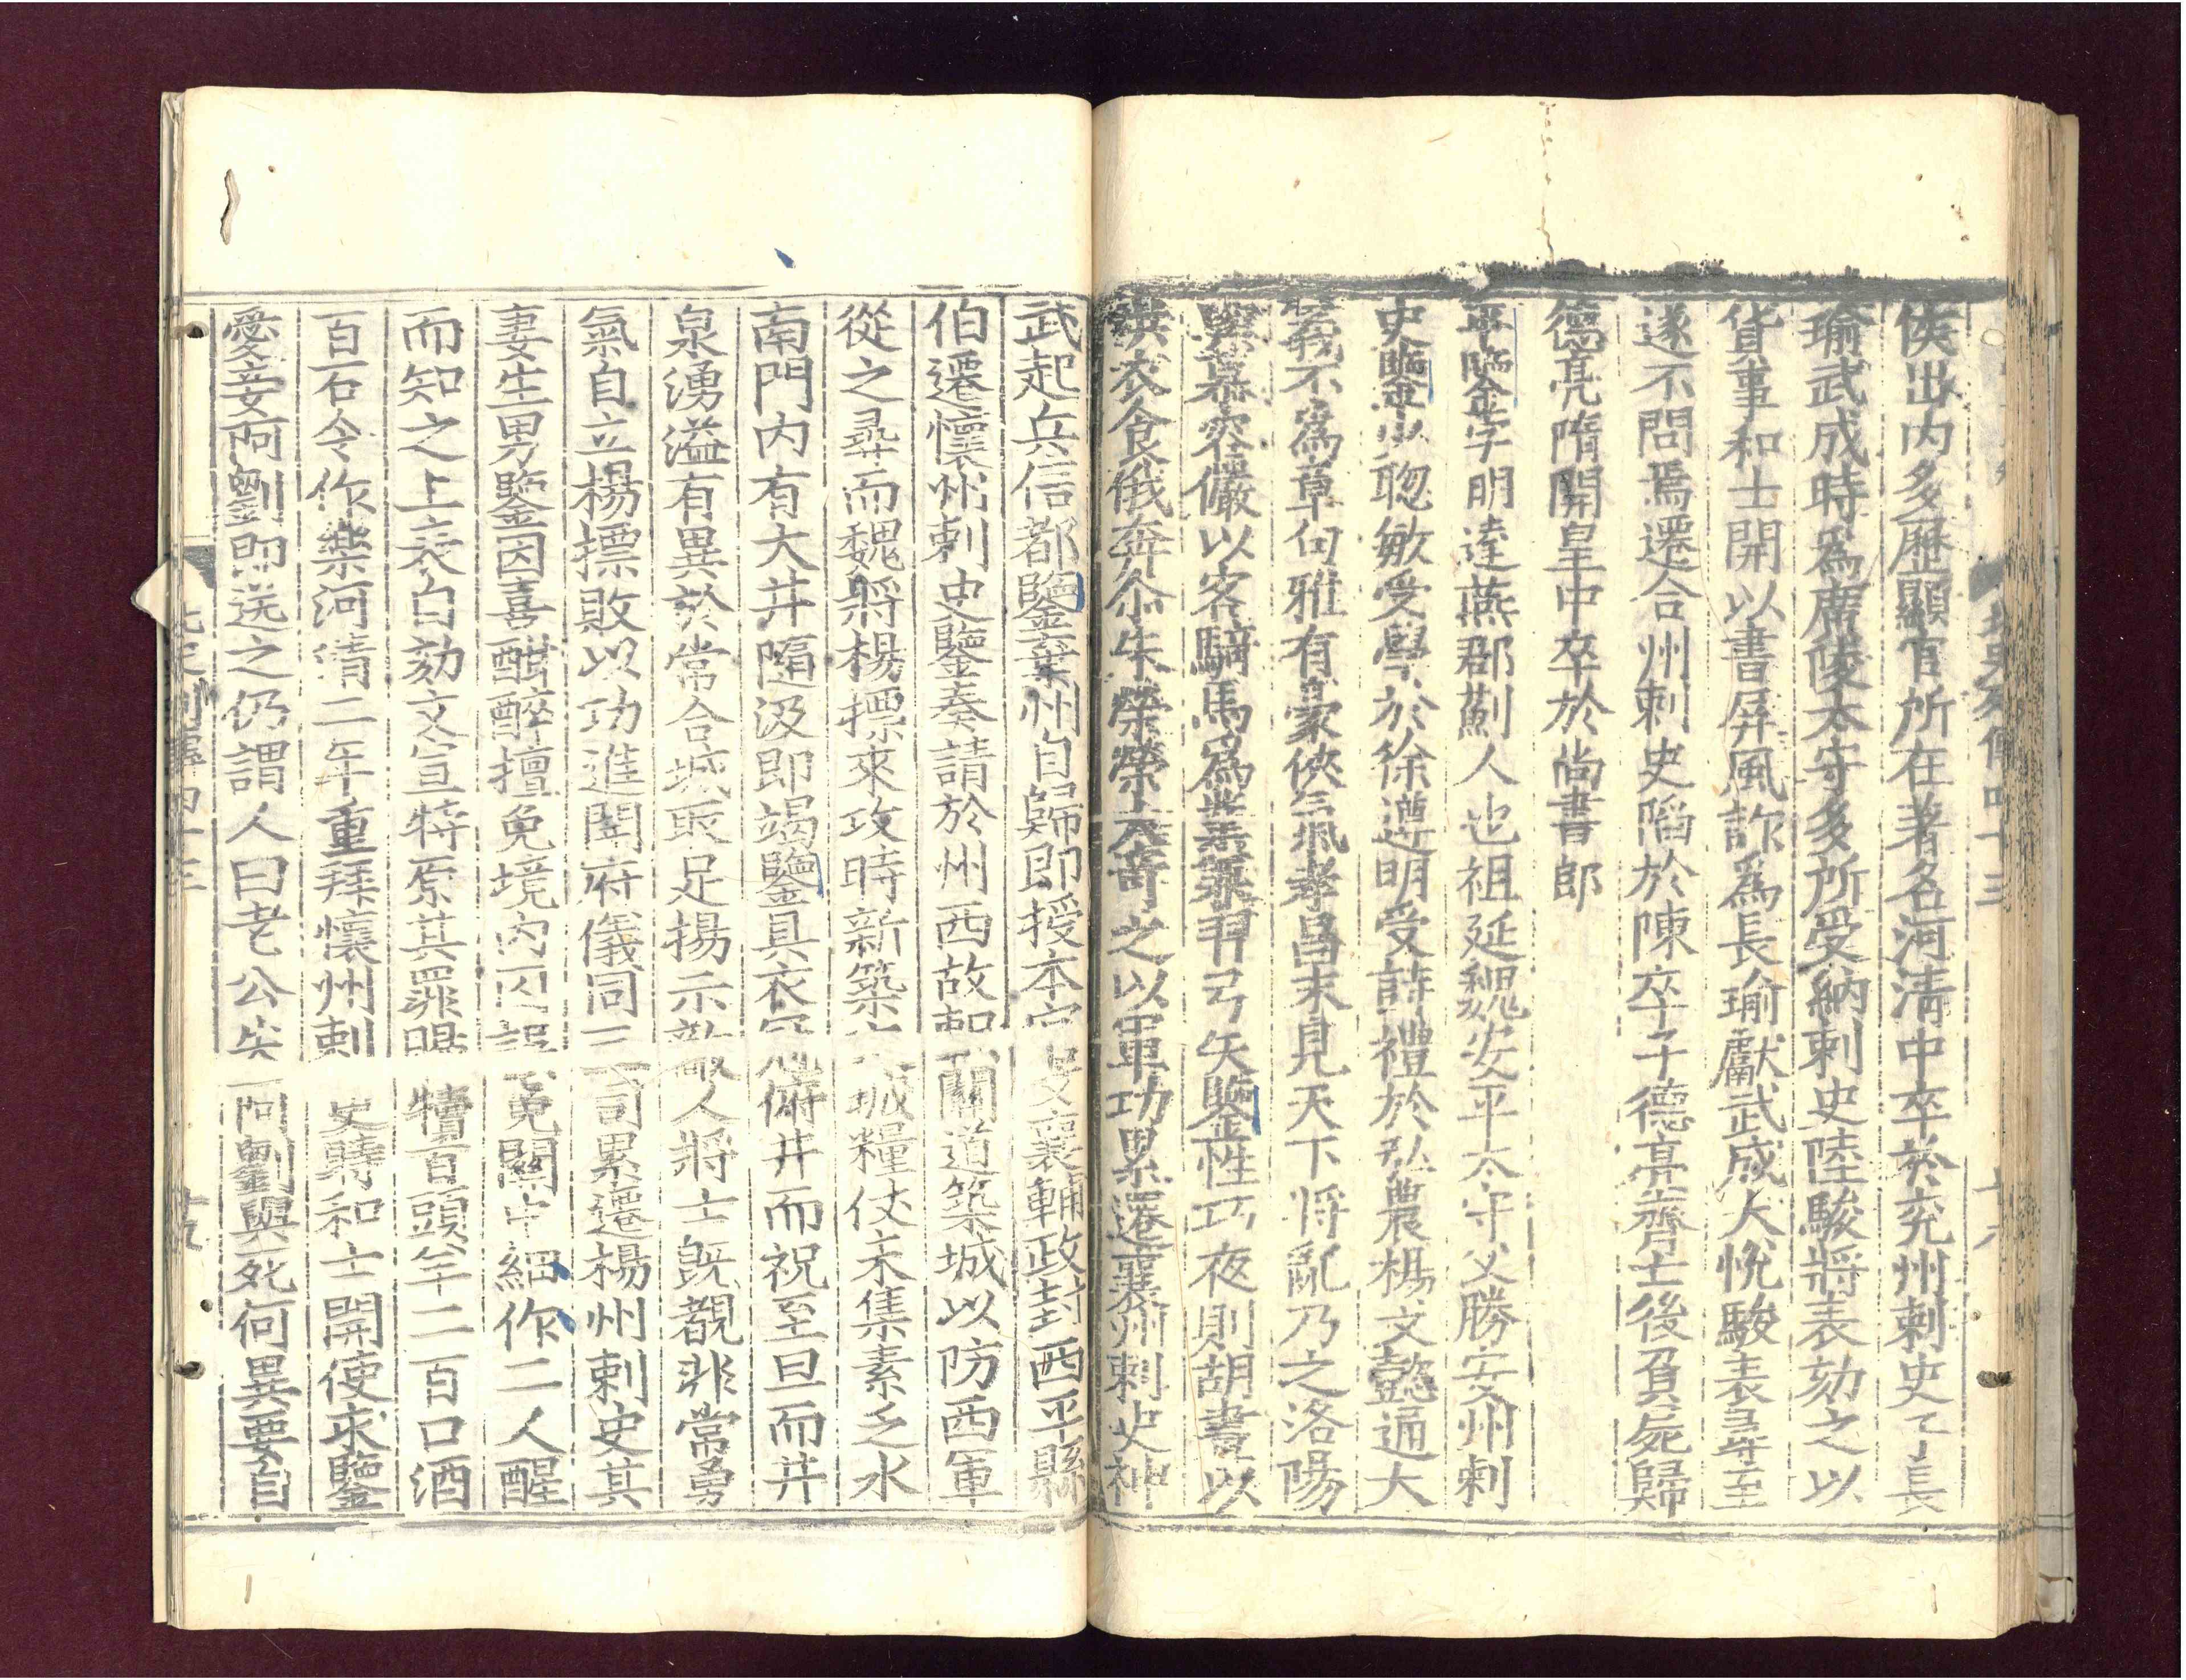 侯出內多歷顯官所在著名河清中卒於兖州刺史子長
瑜武成時爲廣陵太守多所受納刺史陸駿將表劾之以
貨事和士開以書屏風詐爲長瑜獻武成大悅駿表尋至
遂不問焉遷合州刺史陷於陳卒子德亮齊亡後負屍歸
德亮隋開皇中卒於尚書郎
平鑒字明達燕郡薊人也祖延魏安平太守父勝安州刺
史鑒少聦敏受學於徐遵明受詩禮於弘農楊文懿通大
義不爲章句雅有豪俠氣孝昌末見天下將亂乃之洛陽
與慕容儼以客騎馬爲業兼習弓矢鑒性巧夜則胡畫以
供衣食俄奔尒朱榮榮大奇之以軍功累遷襄州刺史神
北史列傳四十三
武起兵信都鑒棄州自歸即授本官文襄輔政封西平縣
伯遷懷州刺史鑒奏請於州西故軹關道築城以防西軍
從之尋而魏將楊摽來攻時新築城糧仗未集素乏水
南門內有大井隨汲即竭鑒具衣冠俯井而祝至旦而井
泉湧溢有異於常合城取足揚示敵人將士旣覩非常勇
氣自立楊摽敗以功進開府儀同三司累遷楊州刺史其
妻生男鑒因喜酣醉擅免境內囚誤免關中細作二人醒
而知之上表自劾文宣特原其罪賜犢百頭羊二百口酒
百石令作樂河清二年重拜懷州刺史時和士開使求鑒
愛妾阿劉即送之仍謂人曰老公失阿劉與死何異要自
北史列傳四十三